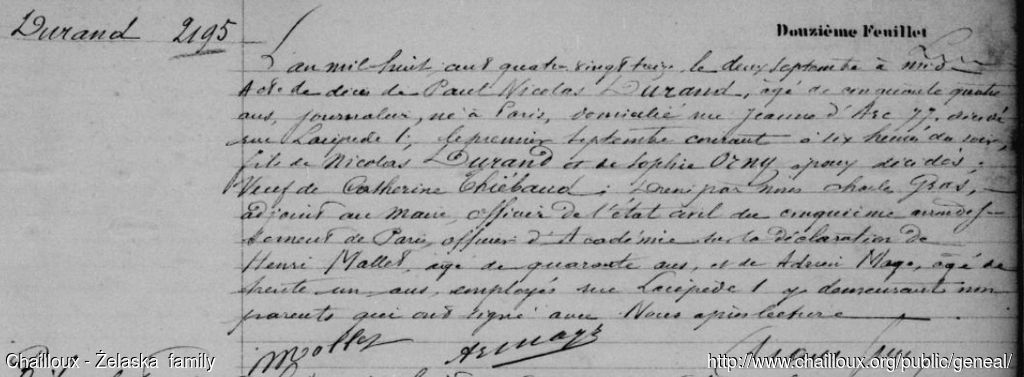 Durand 2195
Douzième Feuillet
L'an mil huit cent quatre vingt seize, le deux septembre à midi
Acte de décès de Paul Nicolas Durand, âgé de cinquante quatre
ans, journalier, né à Paris, domicilié rue Jeanne d'Arc 77, décédé
rue Lacépède 1, le premier septembre courant à six heures du soir,
fils de Nicolas Durand et de Sophie Orny époux décédés.
Veuf de Catherine Thiébaud ; Dressé par nous Charles Gras,
adjoint au Maire, officier de l'état civil du cinquième arrondis-
sement de Paris, officier d'Académie sur la déclaration de
Henri Mallet, âgé de quarante ans, et de Adrien Mage, âgé de
trente un ans, employés rue Lacépède 1 y demeurant non
parents qui ont signé avec Nous après lecture
Mallet
Chailloux - Żelaska family
http://www.chailloux.org/public/geneal/